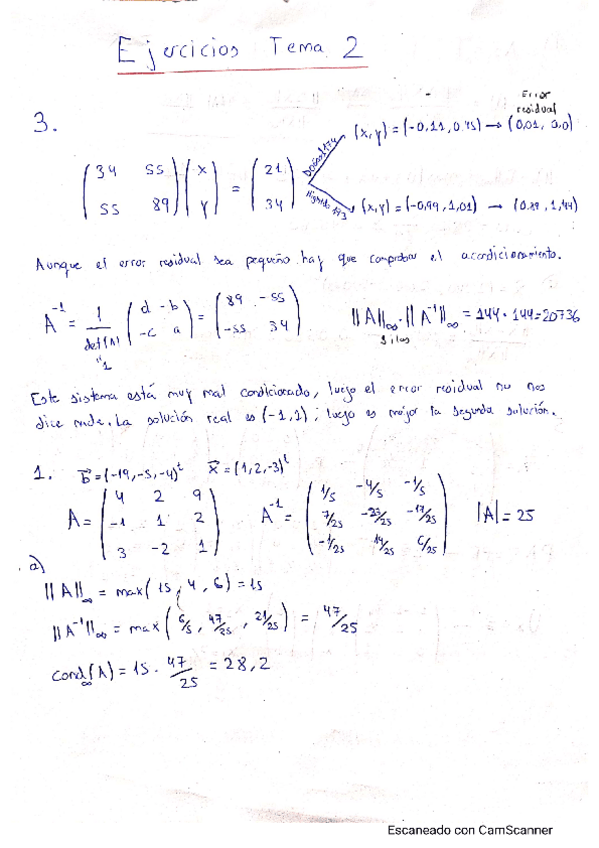 Ejercicios Tema 2
3.
Error residual
(34 55 / 55 89) (x / y) = (21 / 34)
(x,y) = (-0,11, 0,45) → (0,01, 0,0)
(x,y) = (-0,99, 1,01) → (0,89, 1,44)
Aunque el error residual sea pequeño hay que comprobar el acondicionamiento.
A⁻¹ = 1/det(A) (d -b / -c a) = (89 -55 / -55 34)
"1
||A||∞ · ||A⁻¹||∞ = 144 · 144 = 20736
filas
Este sistema está muy mal condicionado, luego el error residual no nos
dice nada. La solución real es (-1,1); luego es mejor la segunda solución.
1. b⃗ = (-19,-5,-4)ᵗ x⃗ = (1,2,-3)ᵗ
A = (4 2 9 / -1 1 2 / 3 -2 1) A⁻¹ = (1/5 -4/5 -1/5 / 7/25 -23/25 -17/25 / -1/25 14/25 6/25) |A| = 25
a)
||A||∞ = max(15, 4, 6) = 15
||A⁻¹||∞ = max(6/5, 47/25, 21/25) = 47/25
cond∞(A) = 15 · 47/25 = 28,2
Escaneado con CamScanner